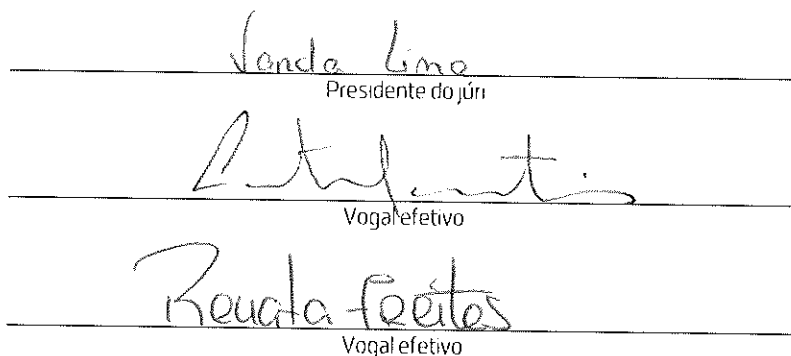 Vanda Lima
Presidente do júri
Vogal efetivo
Renata Freitas
Vogal efetivo